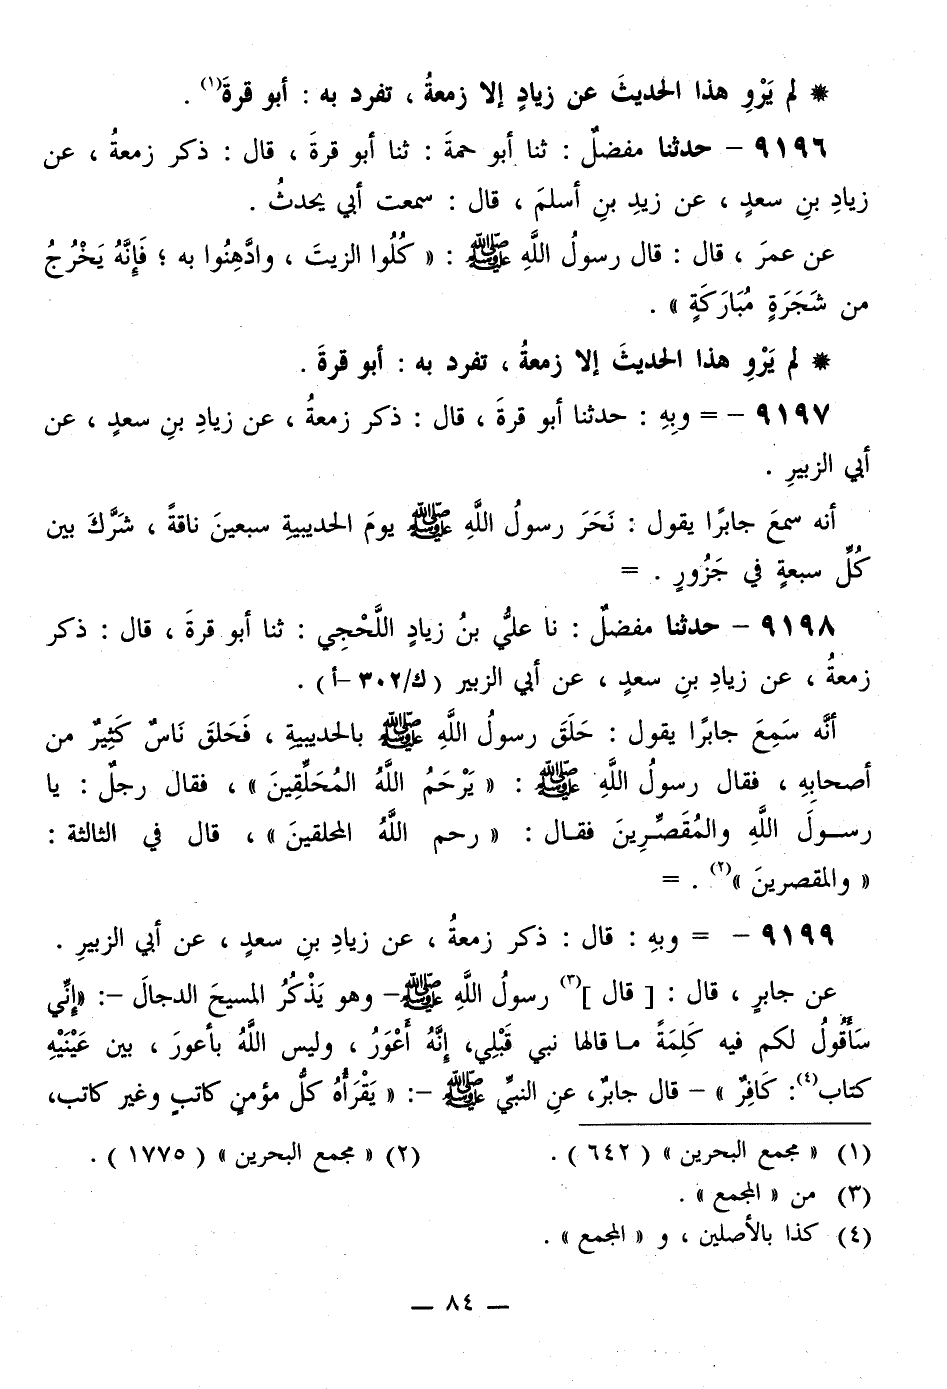 * لم يَرْوِ هذا الحديثَ عن زيادٍ إلا زمعةُ ، تفرد به : أبو قرةَ(١) .
٩١٩٦ – حدثنا مفضلٌ : ثنا أبو حمةَ : ثنا أبو قرةَ ، قال : ذكر زمعةُ ، عن
زيادِ بنِ سعدٍ ، عن زيدِ بنِ أسلمَ ، قال : سمعت أبي يحدثُ .
عن عمرَ ، قال : قال رسولُ اللَّهِ ﷺ : « كُلُوا الزيتَ ، وادَّهِنُوا به ؛ فَإِنَّهُ يَخْرُجُ
من شَجَرَةٍ مُبَارَكَةٍ » .
* لم يَرْوِ هذا الحديثَ إلا زمعةُ ، تفرد به : أبو قرةَ .
٩١٩٧ – = وبِهِ : حدثنا أبو قرةَ ، قال : ذكر زمعةُ ، عن زيادِ بنِ سعدٍ ، عن
أبي الزبيرِ .
أنه سمعَ جابرًا يقول : نَحَرَ رسولُ اللَّهِ ﷺ يومَ الحديبيةِ سبعينَ ناقةً ، شَرَّكَ بين
كُلِّ سبعةٍ في جَزُورٍ . =
٩١٩٨ – حدثنا مفضلٌ : نا عليُّ بنُ زيادٍ اللَّحْجِي : ثنا أبو قرةَ ، قال : ذكر
زمعةُ ، عن زيادِ بنِ سعدٍ ، عن أبي الزبير ( ك/٣٠٢ –أ ) .
أنَّه سَمِعَ جابرًا يقول : حَلَقَ رسولُ اللَّهِ ﷺ بالحديبيةِ ، فَحَلقَ نَاسٌ كَثِيرٌ من
أصحابِهِ ، فقال رسولُ اللَّهِ ﷺ : « يَرْحَمُ اللَّهُ المُحَلِّقِينَ » ، فقال رجلٌ : يا
رسـولَ اللَّهِ والمُقَصِّرِينَ فقـال : « رحم اللَّهُ المحلقينَ » ، قال في الثالثة :
« والمقصرينَ »(٢) . =
٩١٩٩ – = وبهِ : قال : ذكر زمعةُ ، عن زيادِ بنِ سعدٍ ، عن أبي الزبيرِ .
عن جابرٍ ، قال : [ قال ](٣) رسولُ اللَّهِ ﷺ– وهو يَذْكُرُ المسيحَ الدجالَ –: «إِنِّي
سَأَقُولُ لكم فيه كَلِمَةً مـا قالها نبي قَبْلِي، إِنَّهُ أَعْوَرُ ، وليس اللَّهُ بأعورَ ، بين عَيْنَيْهِ
كتاب(٤): كَافِرٌ » – قال جابرٌ، عنِ النبيِّ ﷺ –: « يَقْرَأُهُ كلُّ مؤمنٍ كاتبٍ وغير كاتب،
(١) « مجمع البحرين » ( ٦٤٢ ) . (٢) « مجمع البحرين » ( ١٧٧٥ ) .
(٣) من « المجمع » .
(٤) كذا بالأصلين ، و « المجمع » .
— ٨٤ —